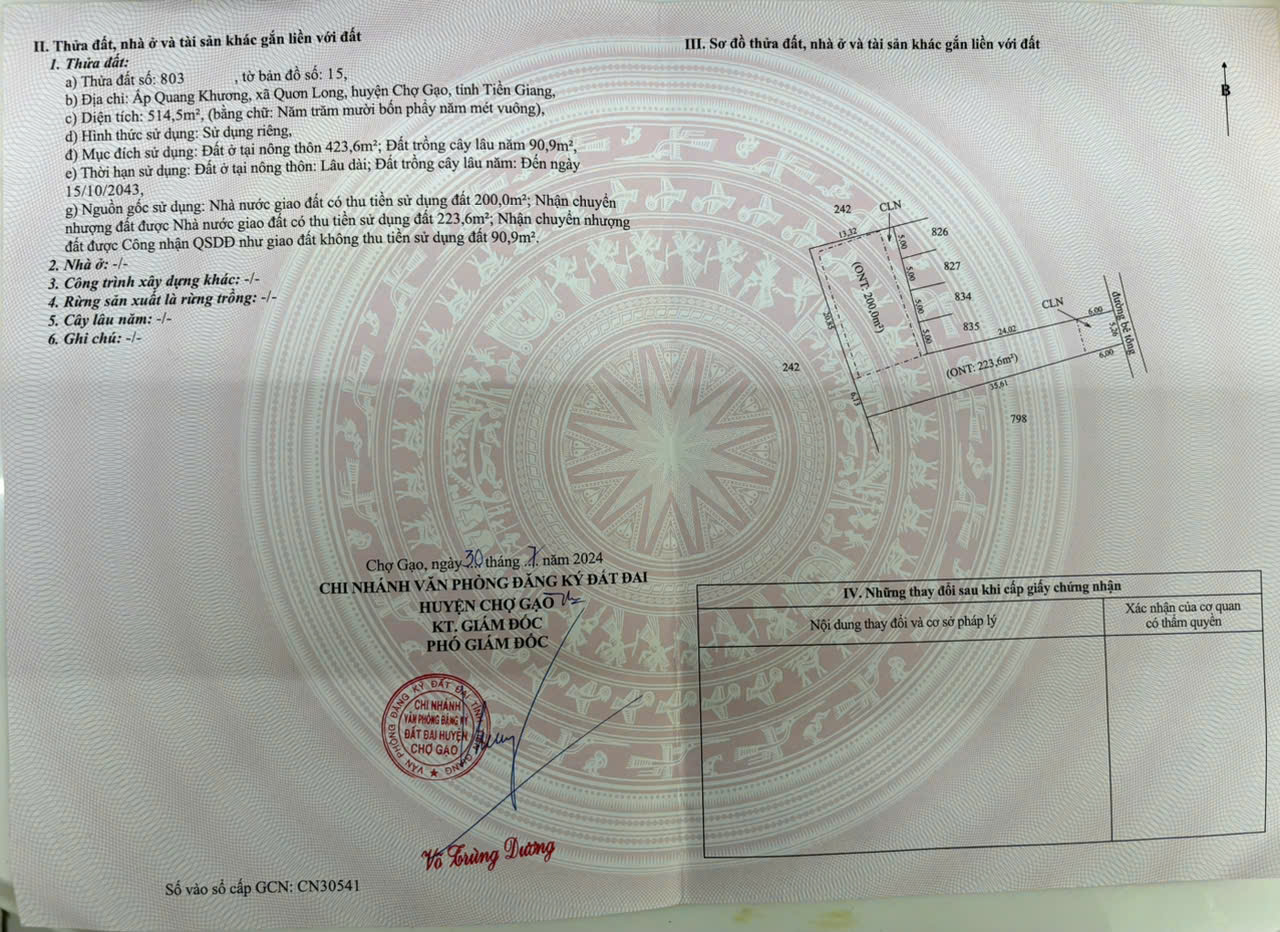 II. Thửa đất, nhà ở và tài sản khác gắn liền với đất
1. Thửa đất:
a) Thửa đất số: 803 , tờ bản đồ số: 15,
b) Địa chỉ: Ấp Quang Khương, xã Quơn Long, huyện Chợ Gạo, tỉnh Tiền Giang,
c) Diện tích: 514,5m², (bằng chữ: Năm trăm mười bốn phẩy năm mét vuông),
d) Hình thức sử dụng: Sử dụng riêng,
đ) Mục đích sử dụng: Đất ở tại nông thôn 423,6m²; Đất trồng cây lâu năm 90,9m²,
e) Thời hạn sử dụng: Đất ở tại nông thôn: Lâu dài; Đất trồng cây lâu năm: Đến ngày
15/10/2043,
g) Nguồn gốc sử dụng: Nhà nước giao đất có thu tiền sử dụng đất 200,0m²; Nhận chuyển
nhượng đất được Nhà nước giao đất có thu tiền sử dụng đất 223,6m²; Nhận chuyển nhượng
đất được Công nhận QSDĐ như giao đất không thu tiền sử dụng đất 90,9m².
2. Nhà ở: -/-
3. Công trình xây dựng khác: -/-
4. Rừng sản xuất là rừng trồng: -/-
5. Cây lâu năm: -/-
6. Ghi chú: -/-
Chợ Gạo, ngày 30 tháng 7 năm 2024
CHI NHÁNH VĂN PHÒNG ĐĂNG KÝ ĐẤT ĐAI
HUYỆN CHỢ GẠO
KT. GIÁM ĐỐC
PHÓ GIÁM ĐỐC
VĂN PHÒNG ĐĂNG KÝ ĐẤT ĐAI TỈNH TIỀN GIANG
CHI NHÁNH
VĂN PHÒNG ĐĂNG KÝ
ĐẤT ĐAI HUYỆN
CHỢ GẠO
Võ Trùng Dương
Số vào sổ cấp GCN: CN30541
III. Sơ đồ thửa đất, nhà ở và tài sản khác gắn liền với đất
B
242
CLN
13,32
826
5,00
827
5,00
(ONT: 200,0m²)
834
5,00
835
5,00
20,85
CLN
6,00
đường bê tông
24,02
5,26
242
(ONT: 223,6m²)
6,00
35,61
6,13
798
IV. Những thay đổi sau khi cấp giấy chứng nhận
Nội dung thay đổi và cơ sở pháp lý
Xác nhận của cơ quan
có thẩm quyền